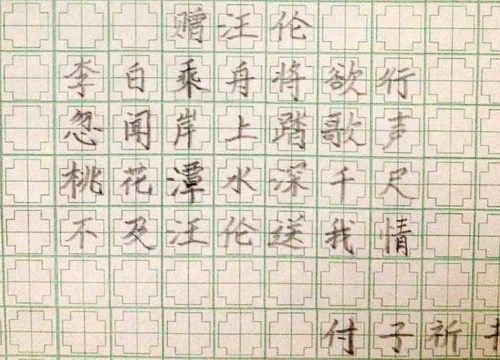 赠汪伦
李白乘舟将欲行
忽闻岸上踏歌声
桃花潭水深千尺
不及汪伦送我情
付子祈